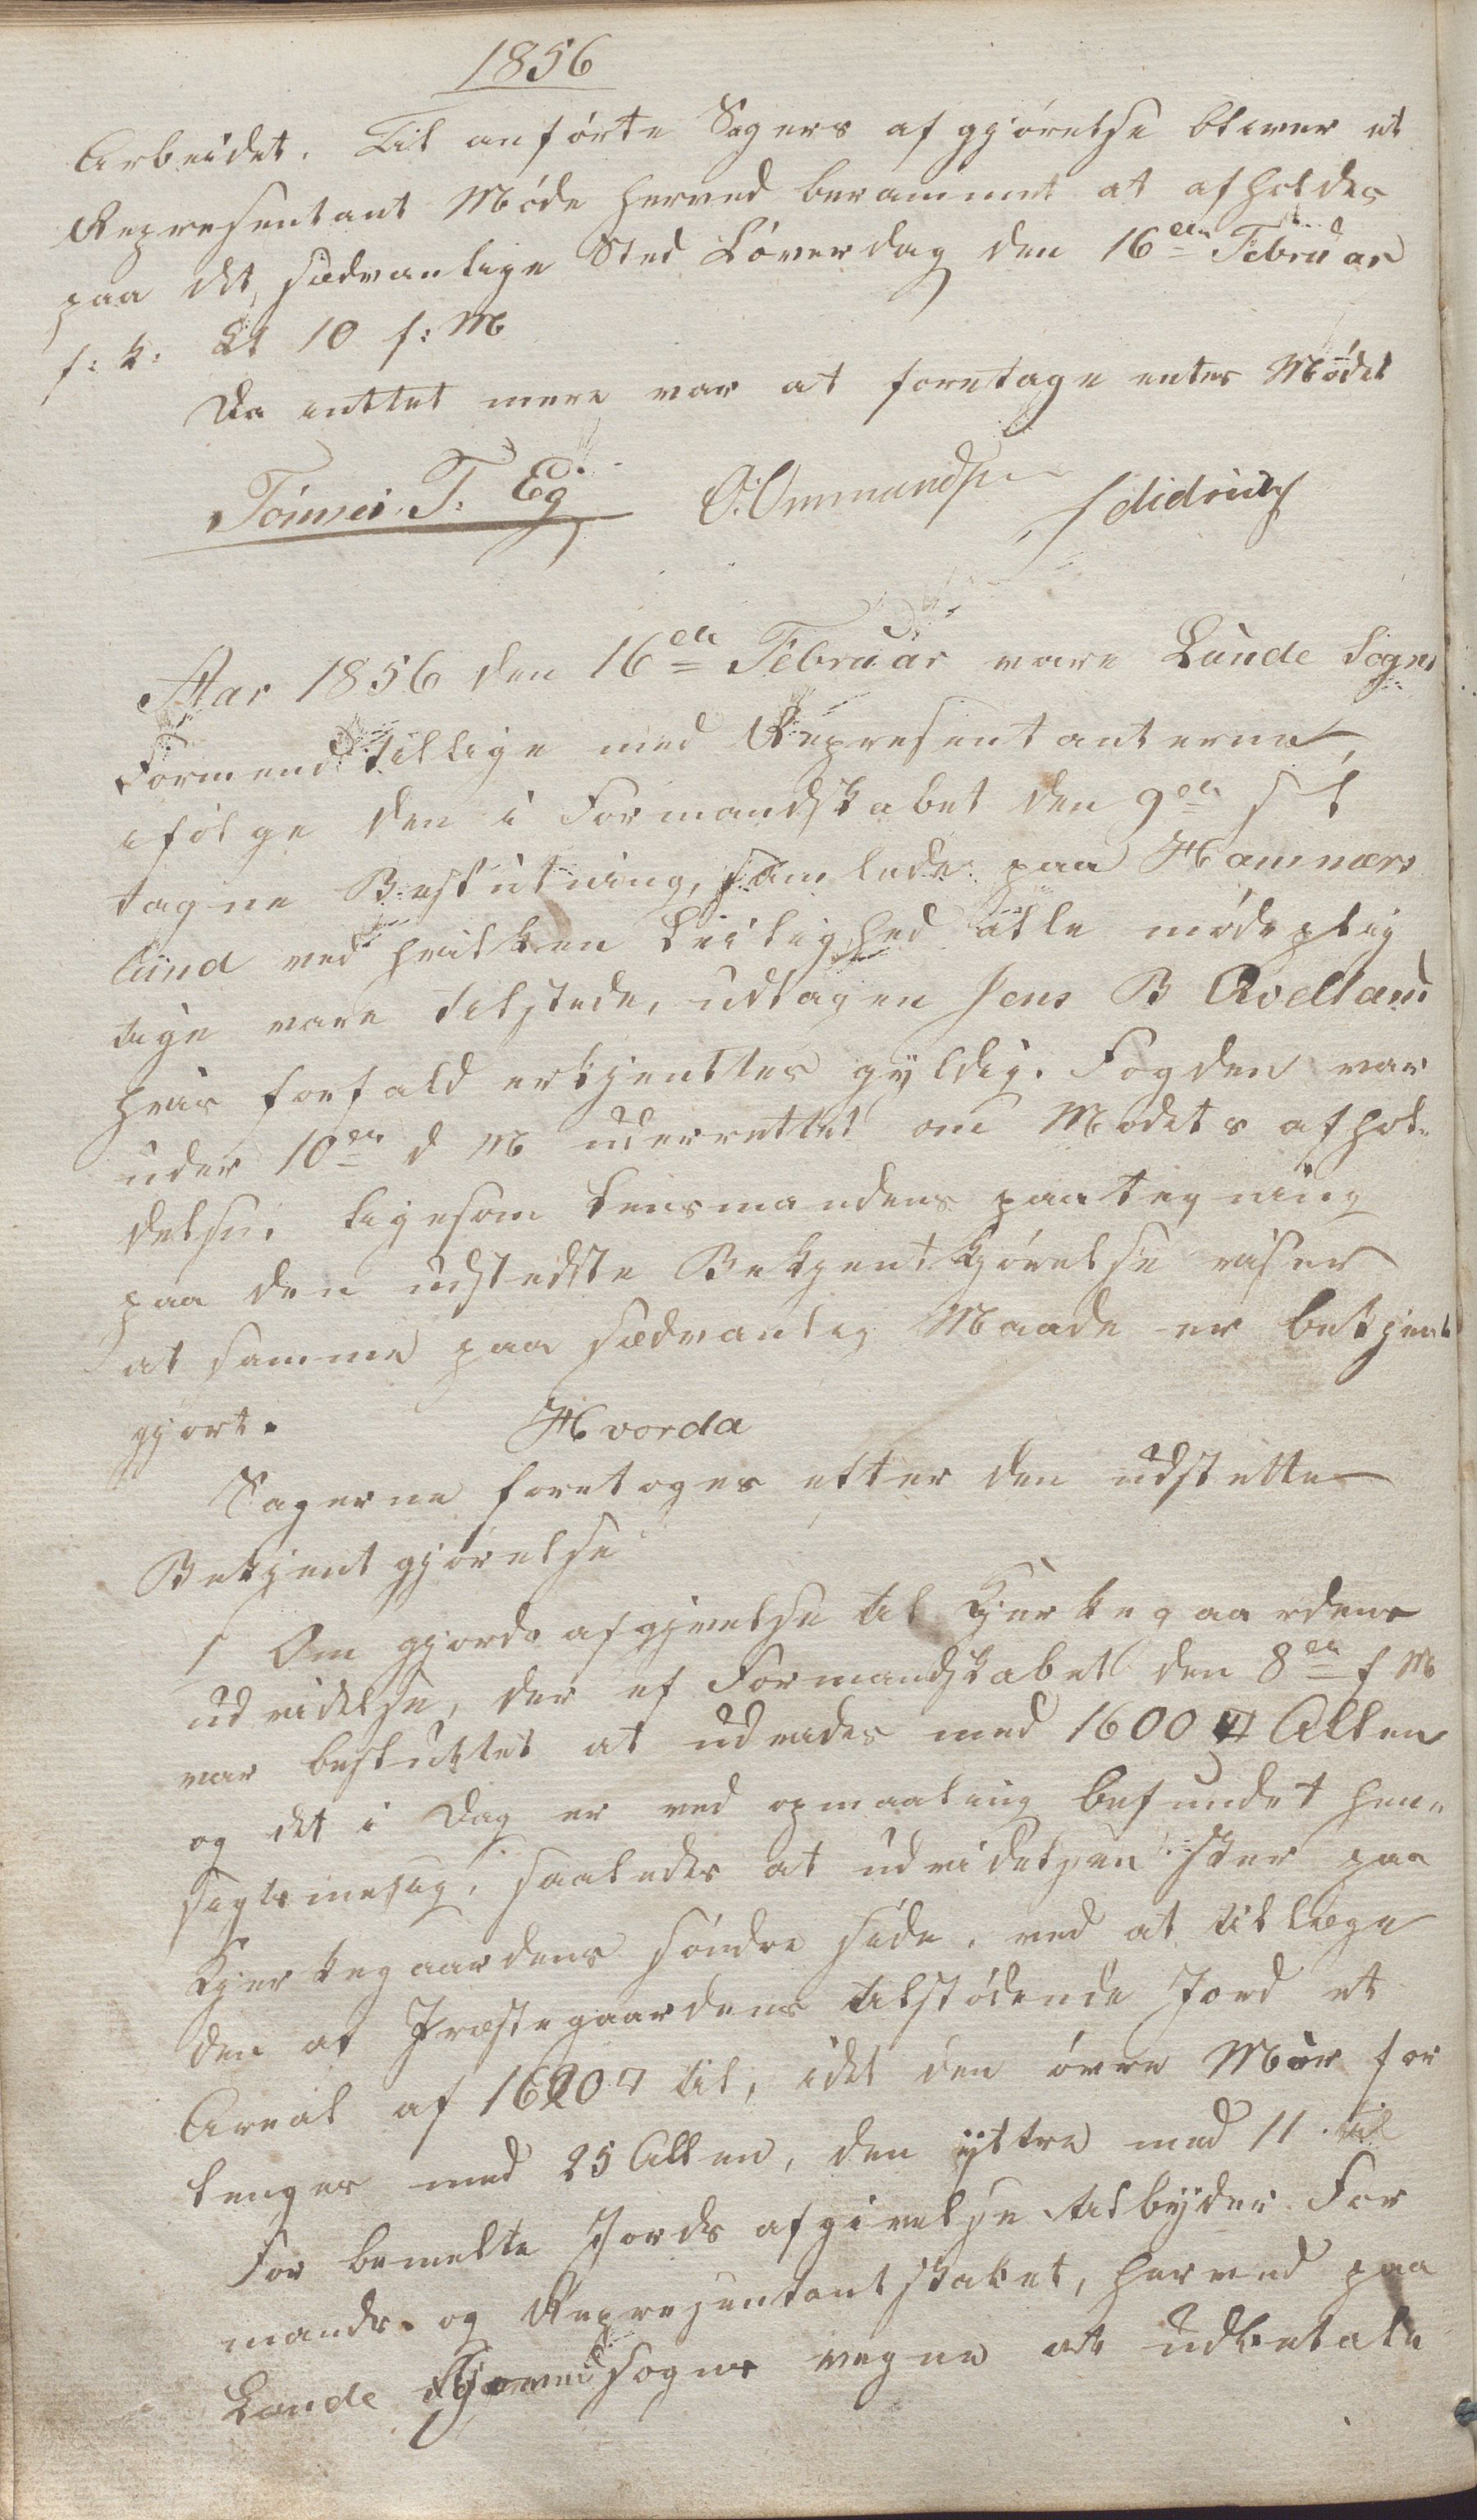 1856
Arbeidet. Til anførte Sagers afgjørelse bliver et
Representant Møde herved berammet at afholdes
paa det sædvanlige Sted Løverdag den 16de Februar
f: k: Kl 10 f: M
Da inttet mere var at foretage entes Mødet
Tønnes T: Eg O. Ommundsen Sdidriks
Aar 1856 den 16de Februar vare Lunde Sogns
Formend tillige med Representanterne,
ifølge den i Formandskabet den 9de s t
tagne Beslutning, samlede paa Hammers
lund ved hvilken Leilighed alle mødeplig
tige vare tilstede, udtagen Jens B Aveland
hvis forfald erkjenttes gyldig. Fogden var
under 10de d M underrettet om Mødets afhol-
delse. ligesom Lensmandens paategning
paa den udstedste Bekjentkjørelse viser
at samme paa sædvanlig Maade er bekjent
gjort. Hvorda
Sagerne foretoges etter den udstette
Bekjentgjørelse
1 Om gjords afgivelse til Kjerkegaardens
udvidelse, der af Formandskabet den 8de f M
var besluttet at udvides med 1600 □ Allen
og det i Dag er ved opmaaling befundet hen-
sigtsmesig, saaledes at udvidelsen sker paa
Kjerkegaardens søndre side, ved at tillege
den af Præstegaardens tilstødende Jord et
Areal af 1620 □ Al, idet den øvre Mur for
lenges med 25 Allen, den yttre med 11 til
For bemelte Jords afgivelse tilbyder For
mands- og Representantskabet, herved paa
Lunde sogns vegne at udbetale